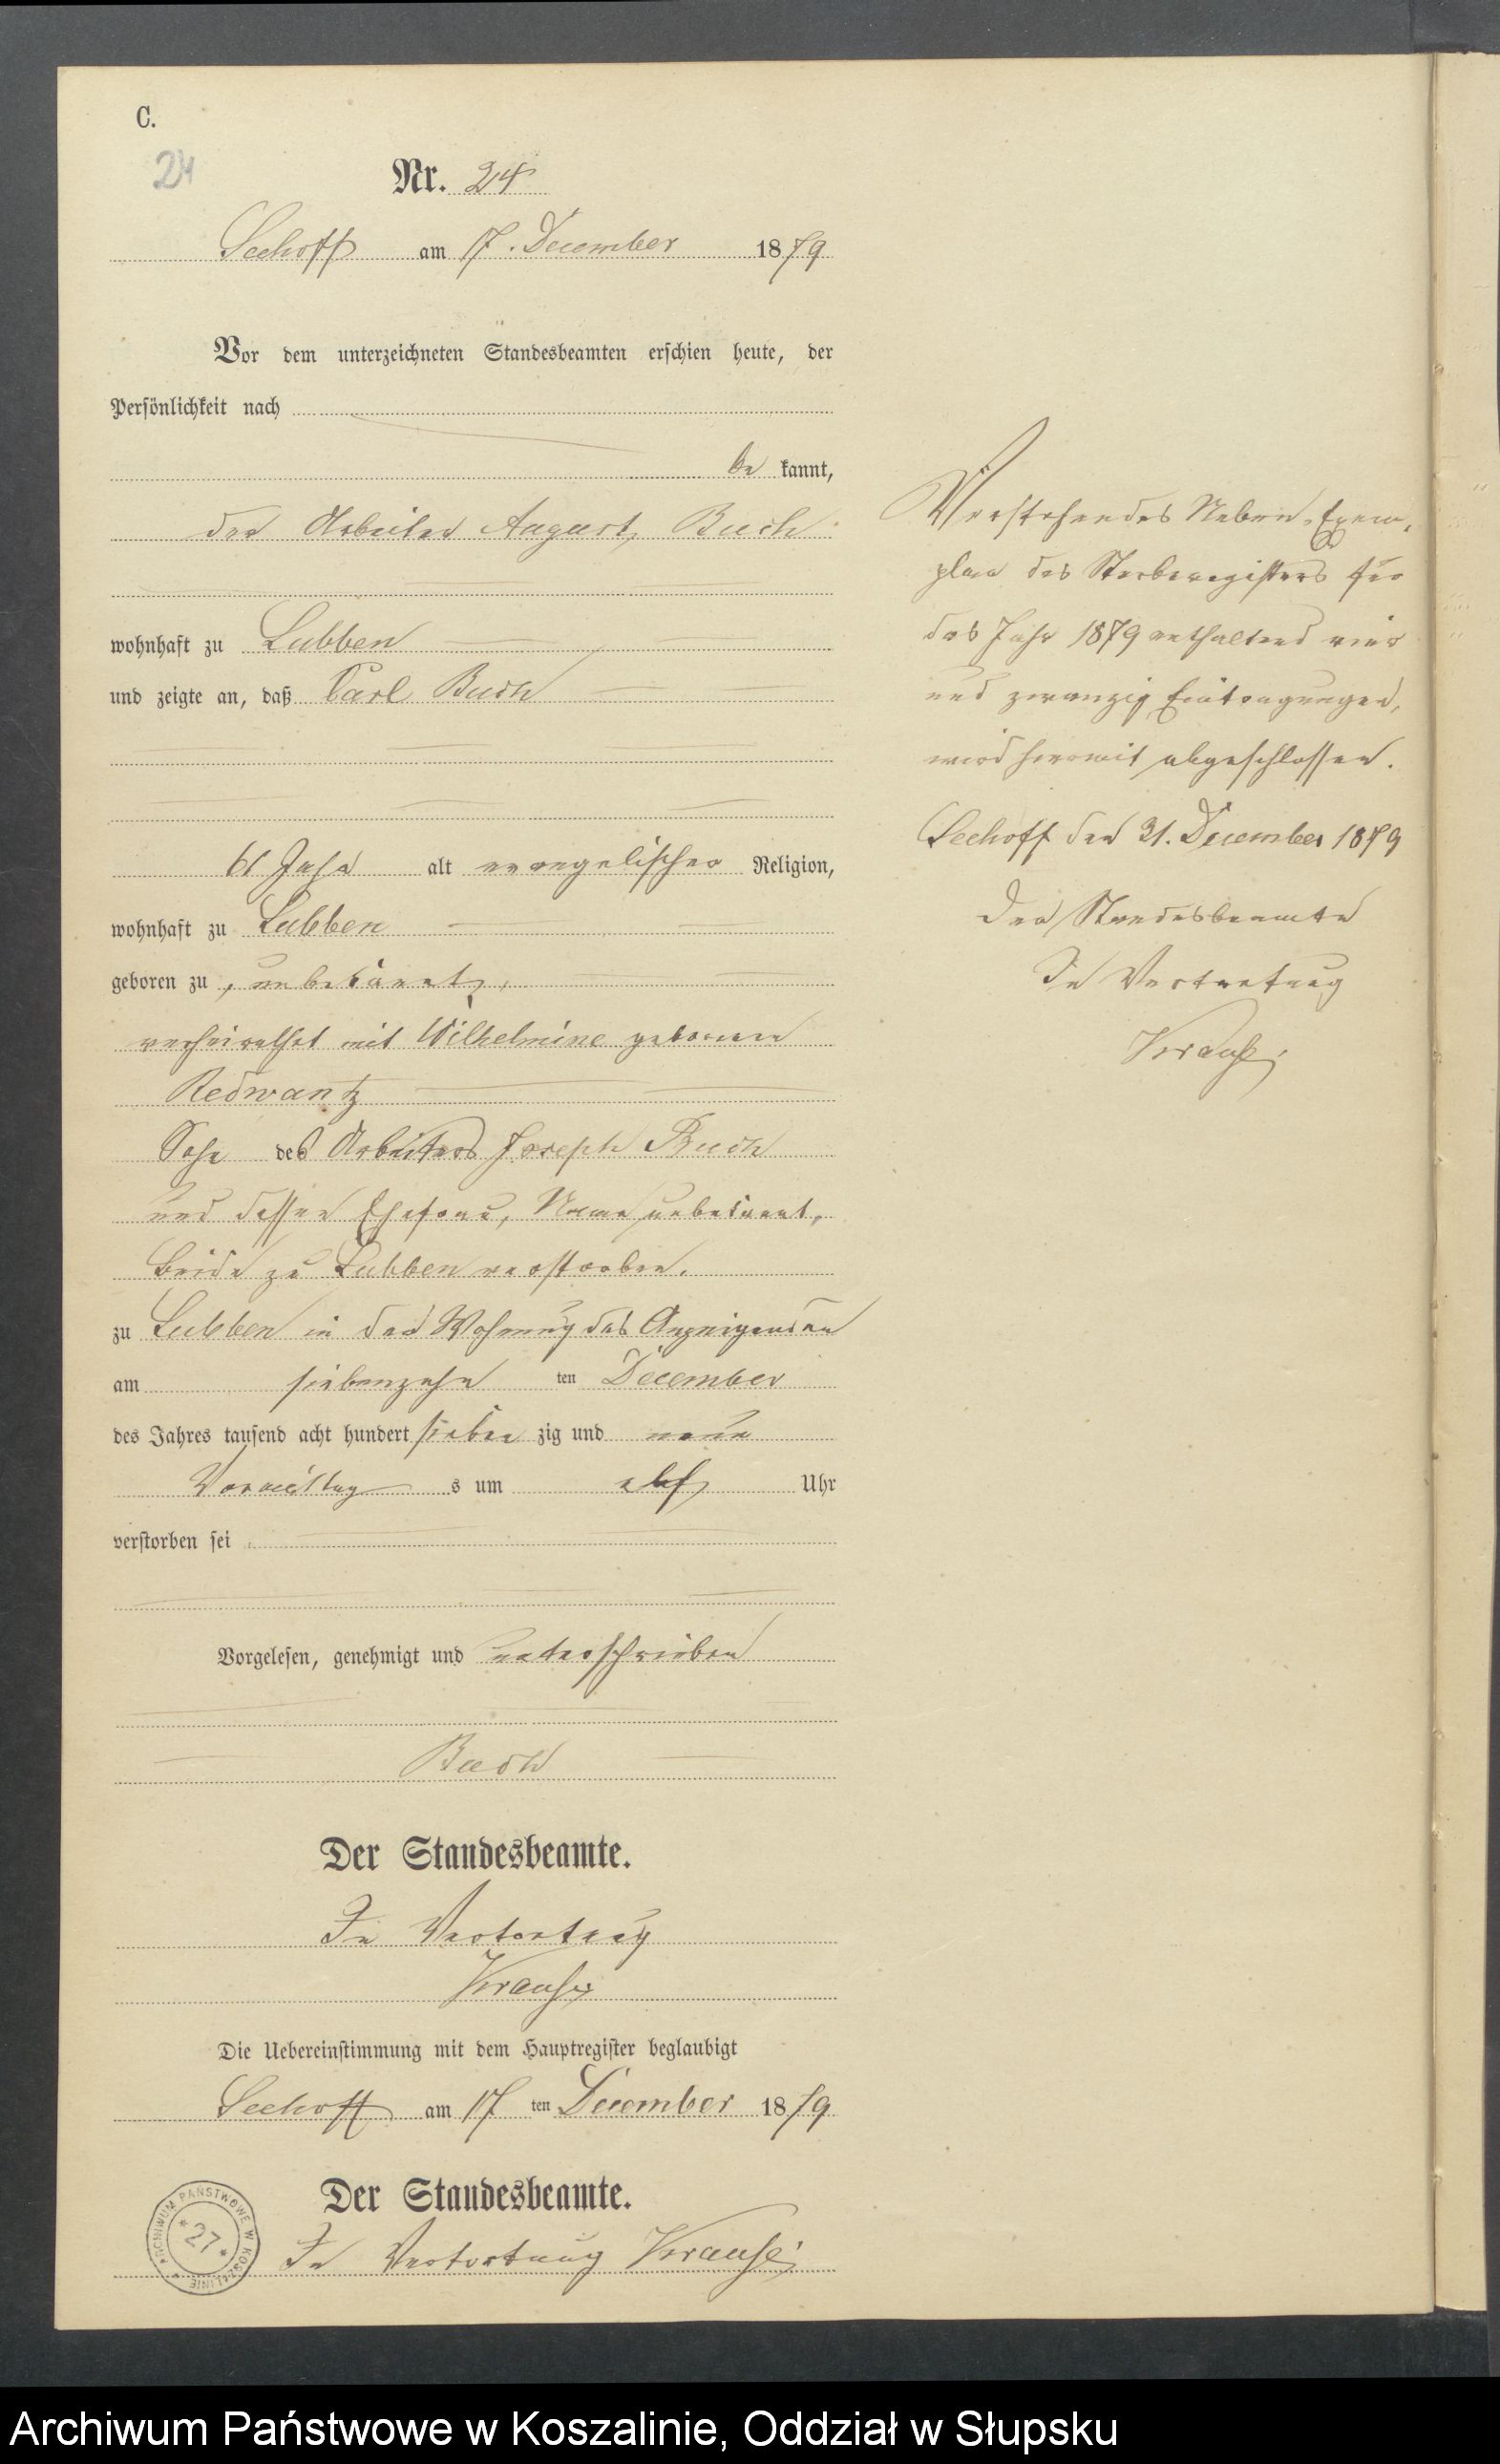 C.
24
Nr. 24
Seehoff am 17. December 1879
Vor dem unterzeichneten Standesbeamten erschien heute, der
Persönlichkeit nach
be kannt,
der Arbeiter August Buch
wohnhaft zu Lubben
und zeigte an, daß Carl Buch
61 Jahr alt evangelischer Religion,
wohnhaft zu Lubben
geboren zu, unbekannt,
verheirathet mit Wilhelmine geborene
Redwantz
Sohn des Arbeiters Joseph Buch
und dessen Ehefrau, Name unbekannt,
beide zu Lubben verstorben.
zu Lubben in der Wohnung des Anzeigenden
am siebenzehn ten December
des Jahres tausend acht hundert sieben zig und neun
Vormittag s um elf Uhr
verstorben sei
Vorgelesen, genehmigt und unterschrieben
Buch
Der Standesbeamte.
In Vertretung
Krause
Die Uebereinstimmung mit dem Hauptregister beglaubigt
Seehoff am 17 ten December 1879
Der Standesbeamte.
In Vertretung Krause
ARCHIWUM PAŃSTWOWE W KOSZALINIE
* 27 *
Vorstehendes Neben-Exem-
plar des Sterberegisters für
das Jahr 1879 enthaltend vier
und zwanzig Eintragungen,
wird hiermit abgeschlossen.
Seehoff den 31. December 1879
Der Standesbeamte
In Vertretung
Krause
Archiwum Państwowe w Koszalinie, Oddział w Słupsku